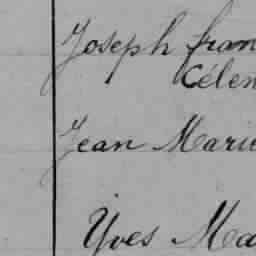 Joseph fran
Célen
Jean Marie
Yves Ma